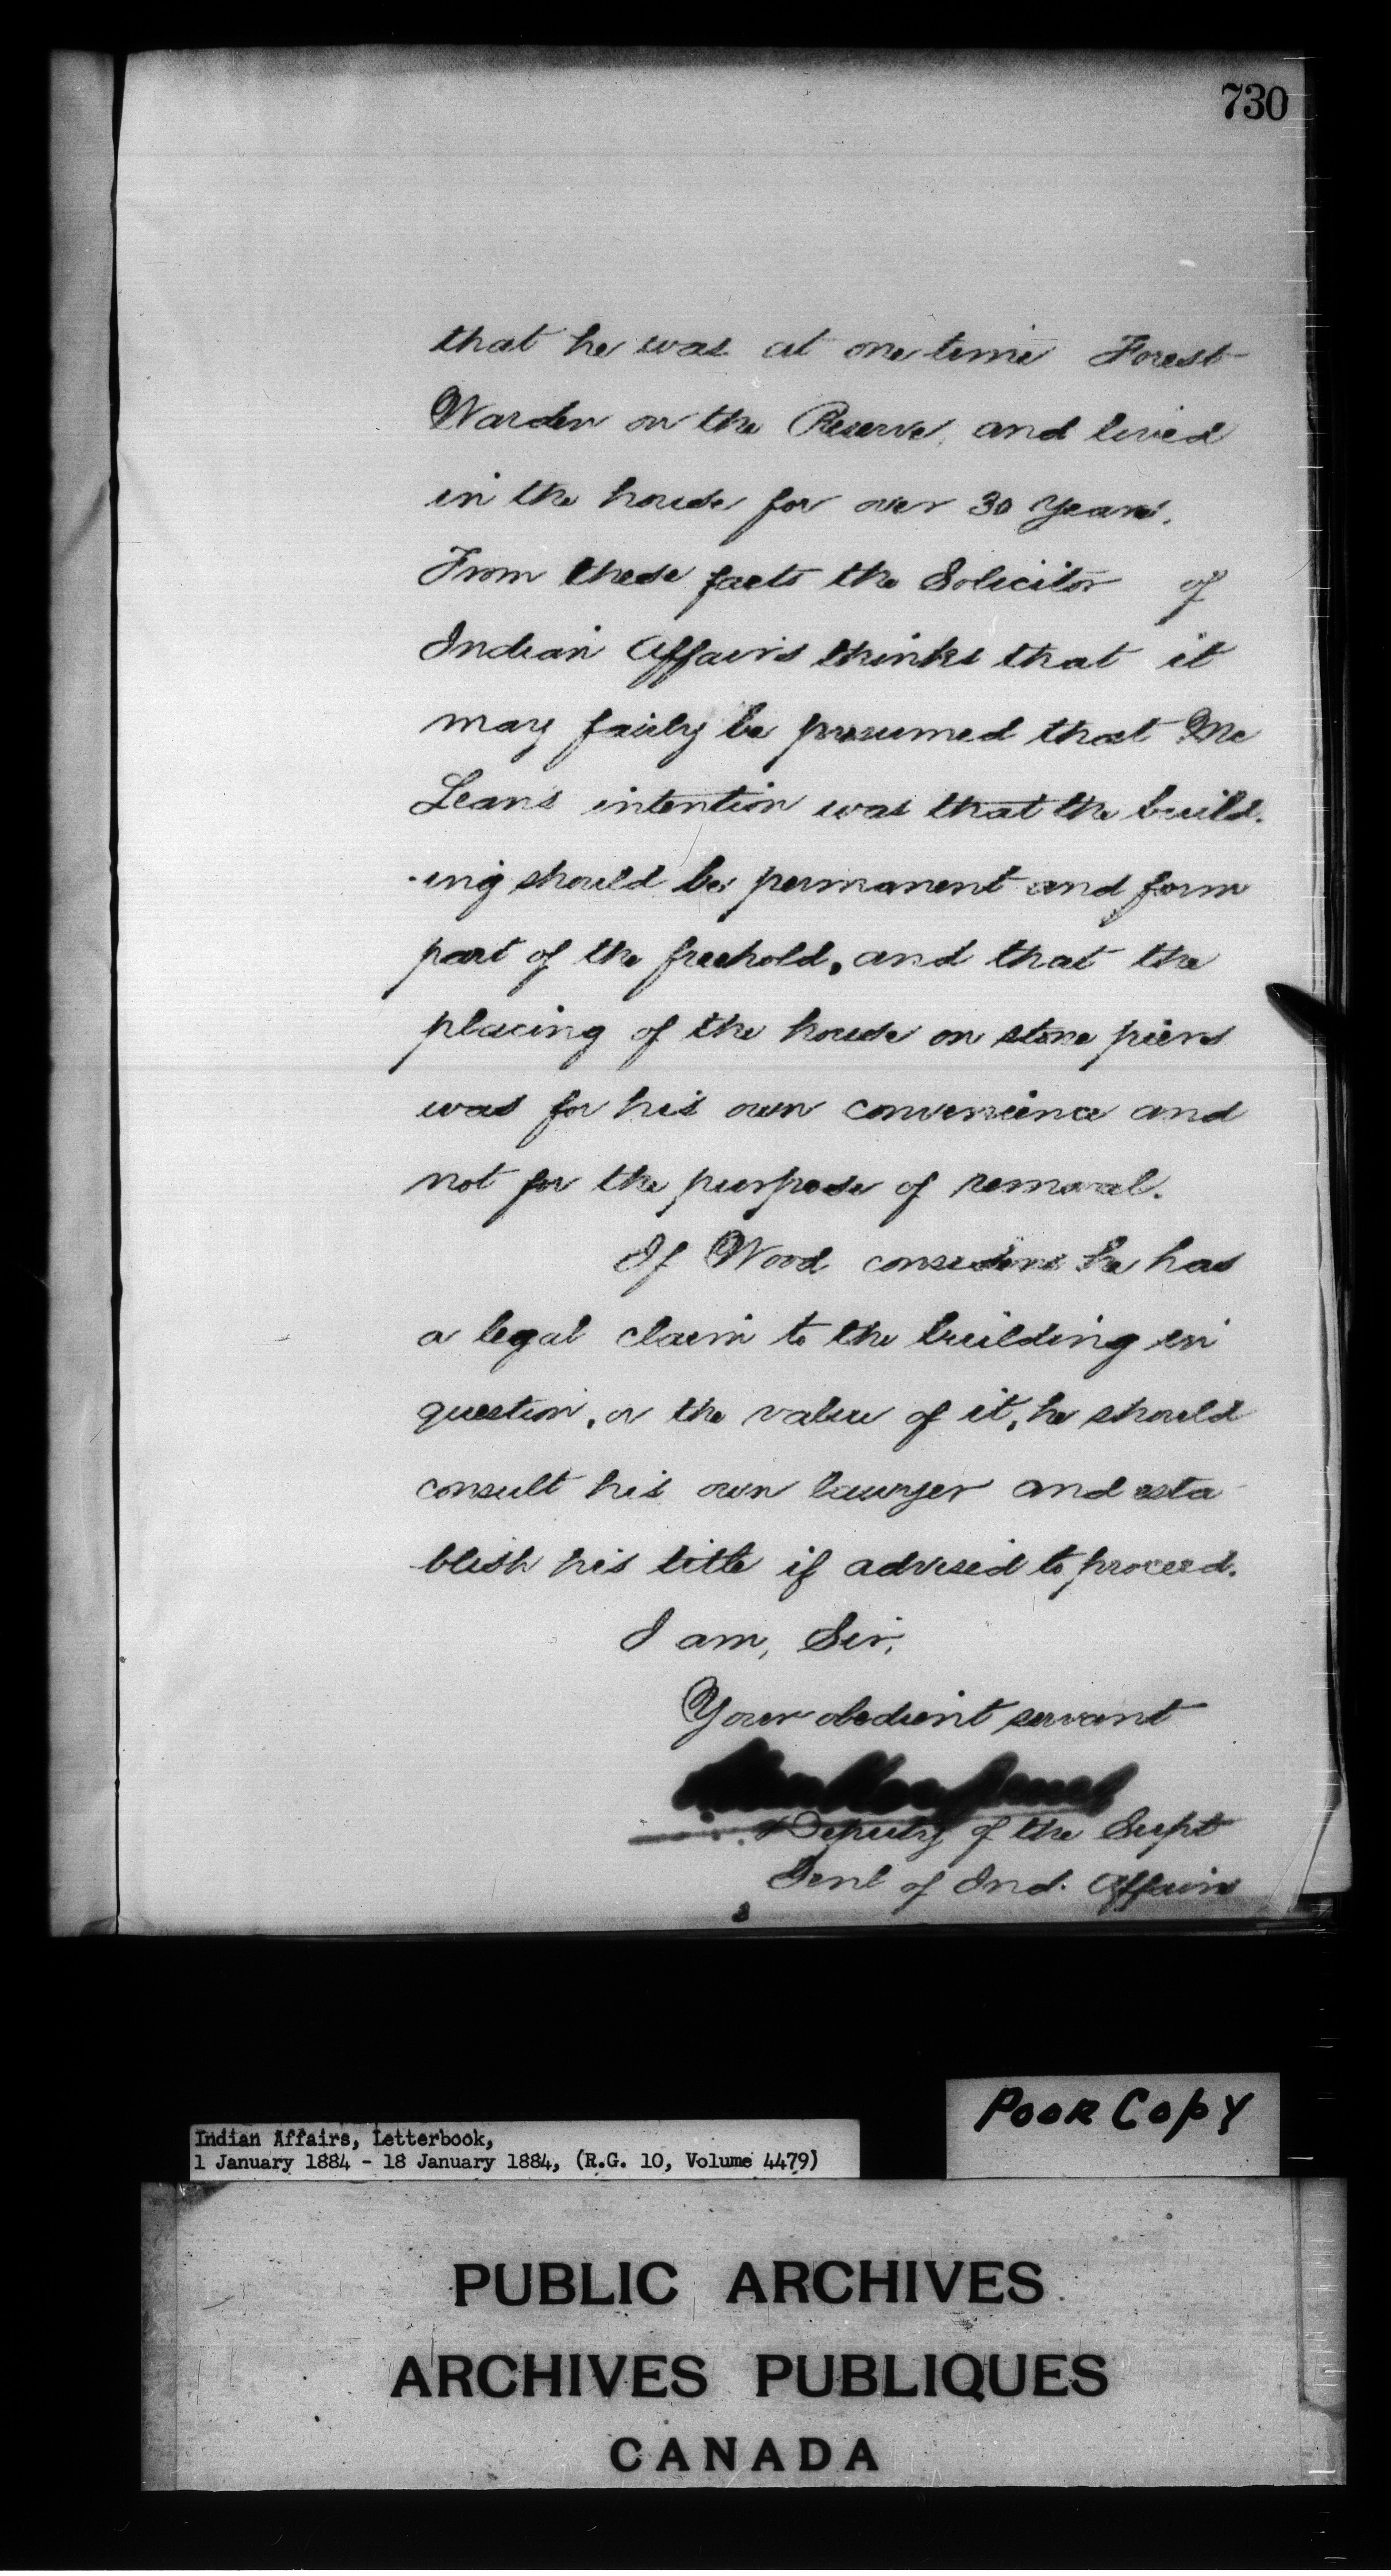 730
that he was at one time Forest
Warden on the Reserve, and lived
in the house for over 30 years.
From these facts the Solicitor of
Indian Affairs thinks that it
may fairly be presumed that Mc
Leans intention was that the build-
-ing should be permanent and form
part of the freehold, and that the
placing of the house on stone piers
was for his own convenience and
not for the purpose of removal.
If Wood considers he has
a legal claim to the building in
question, or the value of it, he should
consult his own lawyer and esta
blish his title if advised to proceed.
I am, Sir,
Your obedient servant
Deputy of the Supt
Genl of Ind. Affairs
Poor Copy
Indian Affairs, Letterbook,
1 January 1884 - 18 January 1884, (R.G. 10, Volume 4479)
PUBLIC ARCHIVES
ARCHIVES PUBLIQUES
CANADA